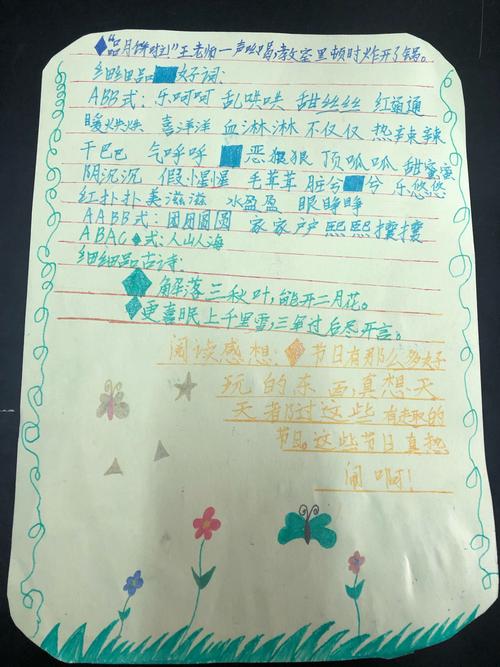 “品月饼啦!”王老师一声吆喝,教室里顿时炸开了锅。
细细品好词:
ABB式:乐呵呵 乱哄哄 甜丝丝 红通通
暖烘烘 喜洋洋 血淋淋 不仅仅 热辣辣
干巴巴 气呼呼 恶狠狠 顶呱呱 甜蜜蜜
阴沉沉 假惺惺 毛茸茸 脏兮兮 乐悠悠
红扑扑 美滋滋 水盈盈 眼睁睁
AABB式:团团圆圆 家家户户 熙熙攘攘
ABAC式:人山人海
细细品古诗:
解落三秋叶,能开二月花。
更喜岷上千里雪,三军过后尽开言。
阅读感想:节日有那么多好
玩的东西,真想天
天都过这些有趣的
节日。这些节日真热
闹啊!